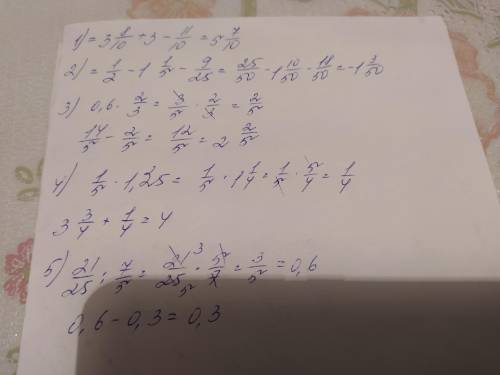 1) = 3 8/10 + 3 - 11/10 = 5 7/10
2) = 1/2 - 1 1/5 - 9/25 = 25/50 - 1 10/50 - 18/50 = -1 3/50
3) 0,6 · 2/3 = 3/5 · 2/3 = 2/5
14/5 - 2/5 = 12/5 = 2 2/5
4) 1/5 · 1,25 = 1/5 · 1 1/4 = 1/5 · 5/4 = 1/4
3 3/4 + 1/4 = 4
5) 21/25 : 7/5 = 21 3/25 5 · 5/7 = 3/5 = 0,6
0,6 - 0,3 = 0,3